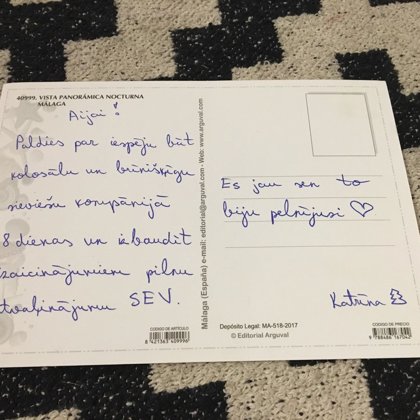 40999. VISTA PANORÁMICA NOCTURNA
MÁLAGA
Aijai!
Paldies par iespēju būt
kolosālu un brīnišķīgu
sieviešu kompānijā
8 dienas un izbaudīt
izaicinājumiem pilnu
atvaļinājumu SEV.
Málaga (España) e-mail: editorial@arguval.com - Web: www.arguval.com
Es jau sen to
biju pelnījusi ♡
Katrīna
CODIGO DE ARTÍCULO
8 421363 409996
Depósito Legal: MA-518-2017
© Editorial Arguval
CODIGO DE PRECIO
9 788486 167042